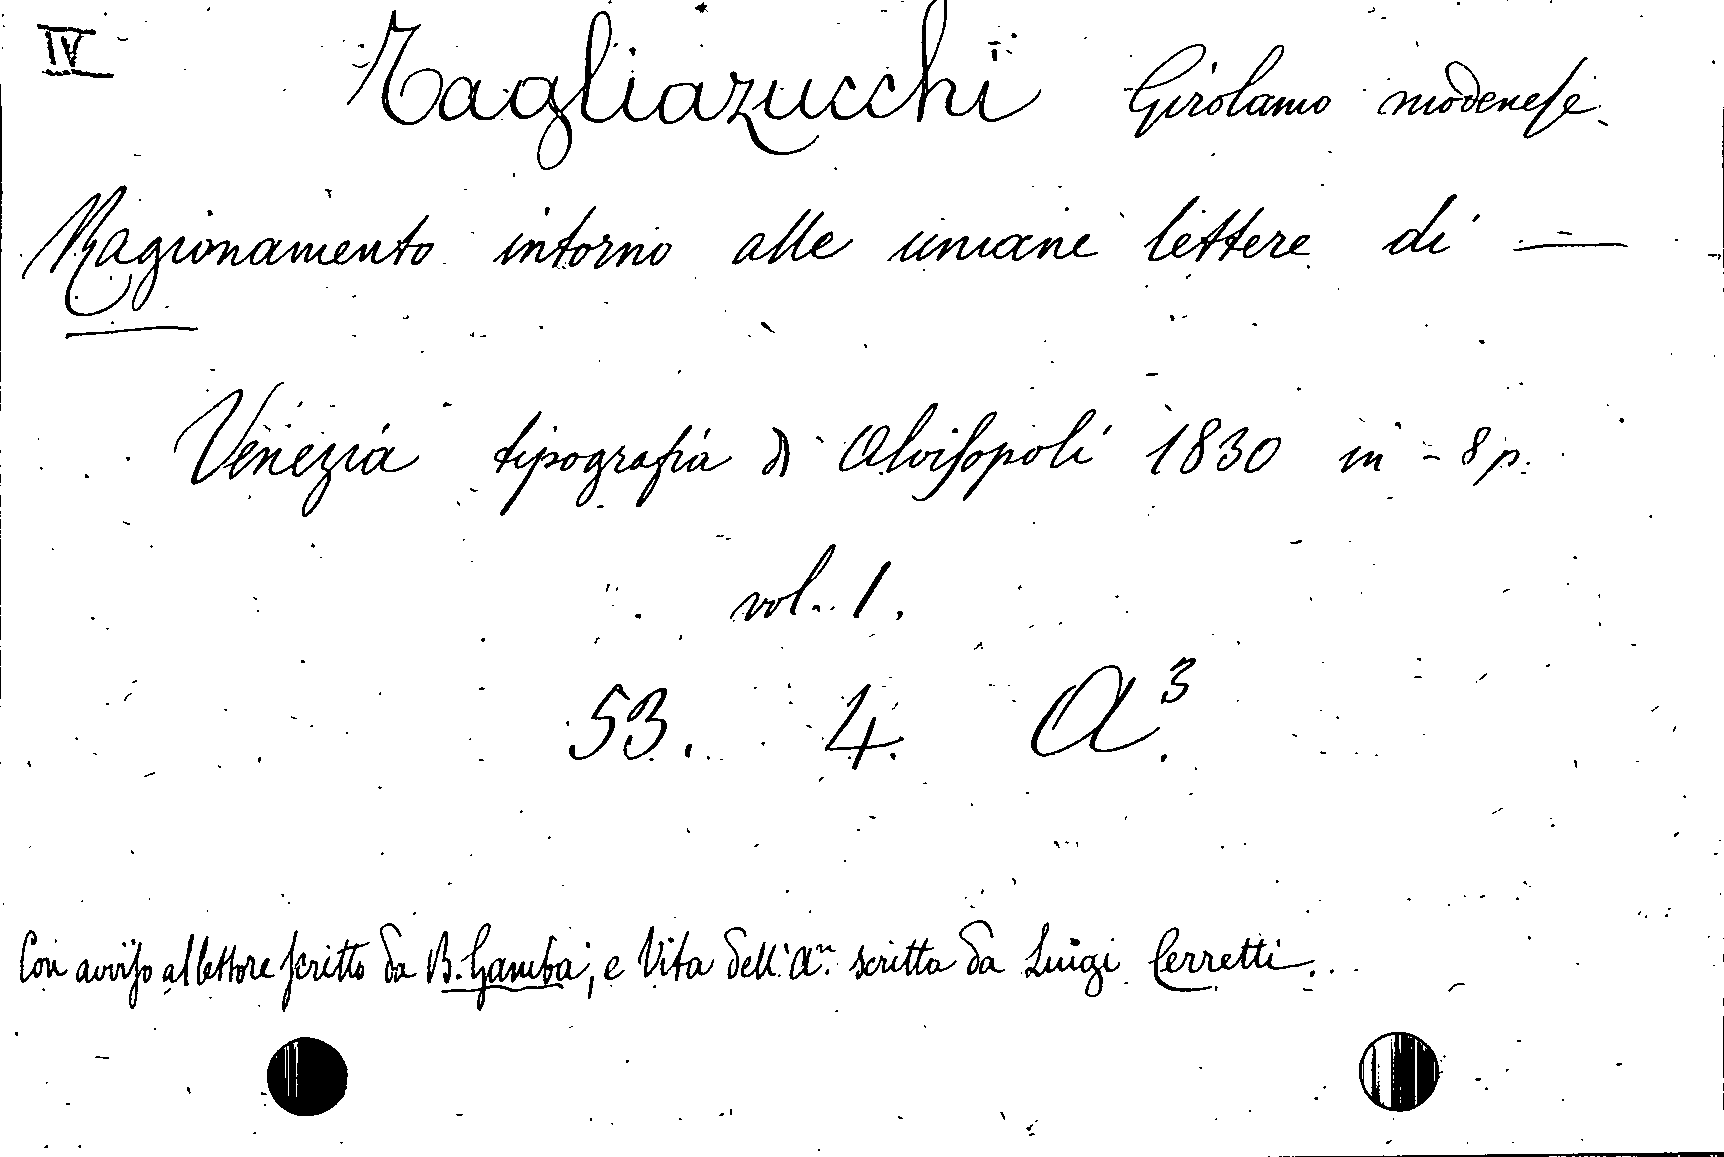 IV
Tagliazucchi Girolamo modenese.
Ragionamento intorno alle umane lettere di —
Venezia tipografia di Alvisopoli 1830 in-8 p.
vol. 1.
53. 4. A³.
Con avviso al lettore scritto da B. Gamba, e Vita dell'A.ᵉ scritta da Luigi Cerretti.